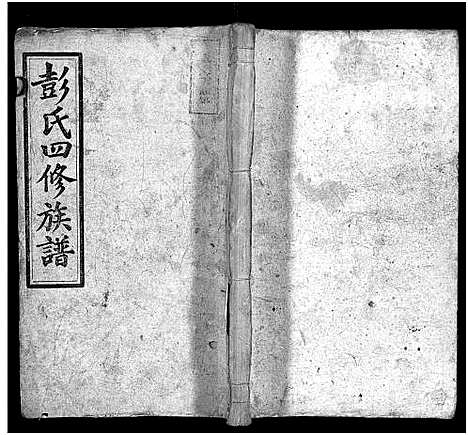 彭氏四修族譜